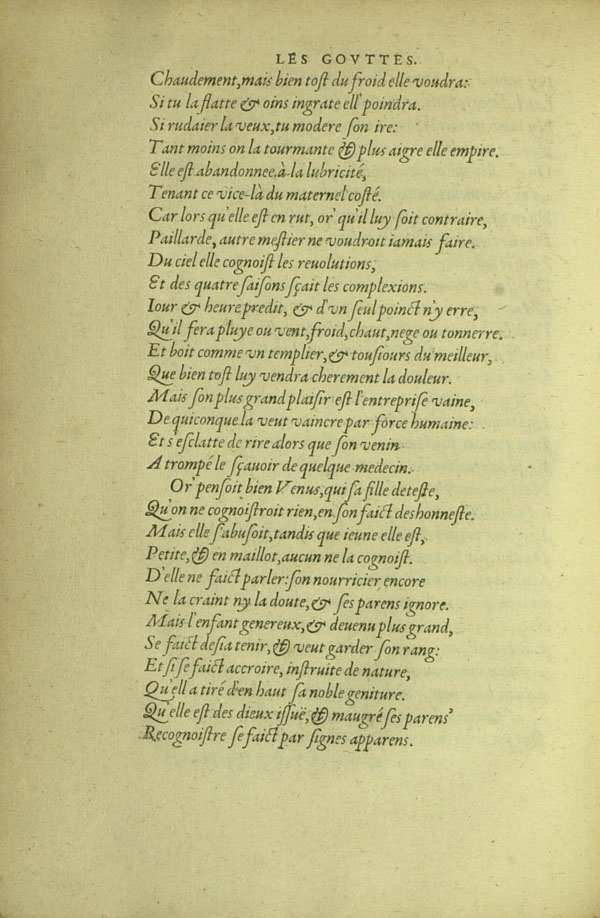 LES GOVTTES.
Chaudement, mais bien toſt du froid elle voudra:
Si tu la flatte & oins ingrate ell' poindra.
Si rudaier la veux, tu modere ſon ire:
Tant moins on la tourmante & plus aigre elle empire.
Elle eſt abandonnee à la lubricité,
Tenant ce vice-là du maternel coſté.
Car lors qu'elle eſt en rut, or' qu'il luy ſoit contraire,
Paillarde, autre meſtier ne voudroit iamais faire.
Du ciel elle cognoiſt les reuolutions,
Et des quatre ſaiſons ſçait les complexions.
Iour & heure predit, & d'vn ſeul poinct n'y erre,
Qu'il fera pluye ou vent, froid, chaut, nege ou tonnerre.
Et boit comme vn templier, & touſiours du meilleur,
Que bien toſt luy vendra cherement la douleur.
Mais ſon plus grand plaiſir eſt l'entrepriſe vaine,
De quiconque la veut vaincre par force humaine:
Et s'eſclatte de rire alors que ſon venin
A trompé le ſçauoir de quelque medecin.
Or' penſoit bien Venus, qui ſa fille deteſte,
Qu'on ne cognoiſtroit rien, en ſon faict deshonneſte.
Mais elle s'abuſoit, tandis que ieune elle eſt,
Petite, & en maillot, aucun ne la cognoiſt.
D'elle ne faict parler: ſon nourricier encore
Ne la craint ny la doute, & ſes parens ignore.
Mais l'enfant genereux, & deuenu plus grand,
Se faict deſia tenir, & veut garder ſon rang:
Et ſi ſe faict accroire, inſtruite de nature,
Qu'ell a tiré d'en haut ſa noble geniture.
Qu'elle eſt des dieux iſſuë, & maugré ſes parens
Recognoiſtre ſe faict par ſignes apparens.